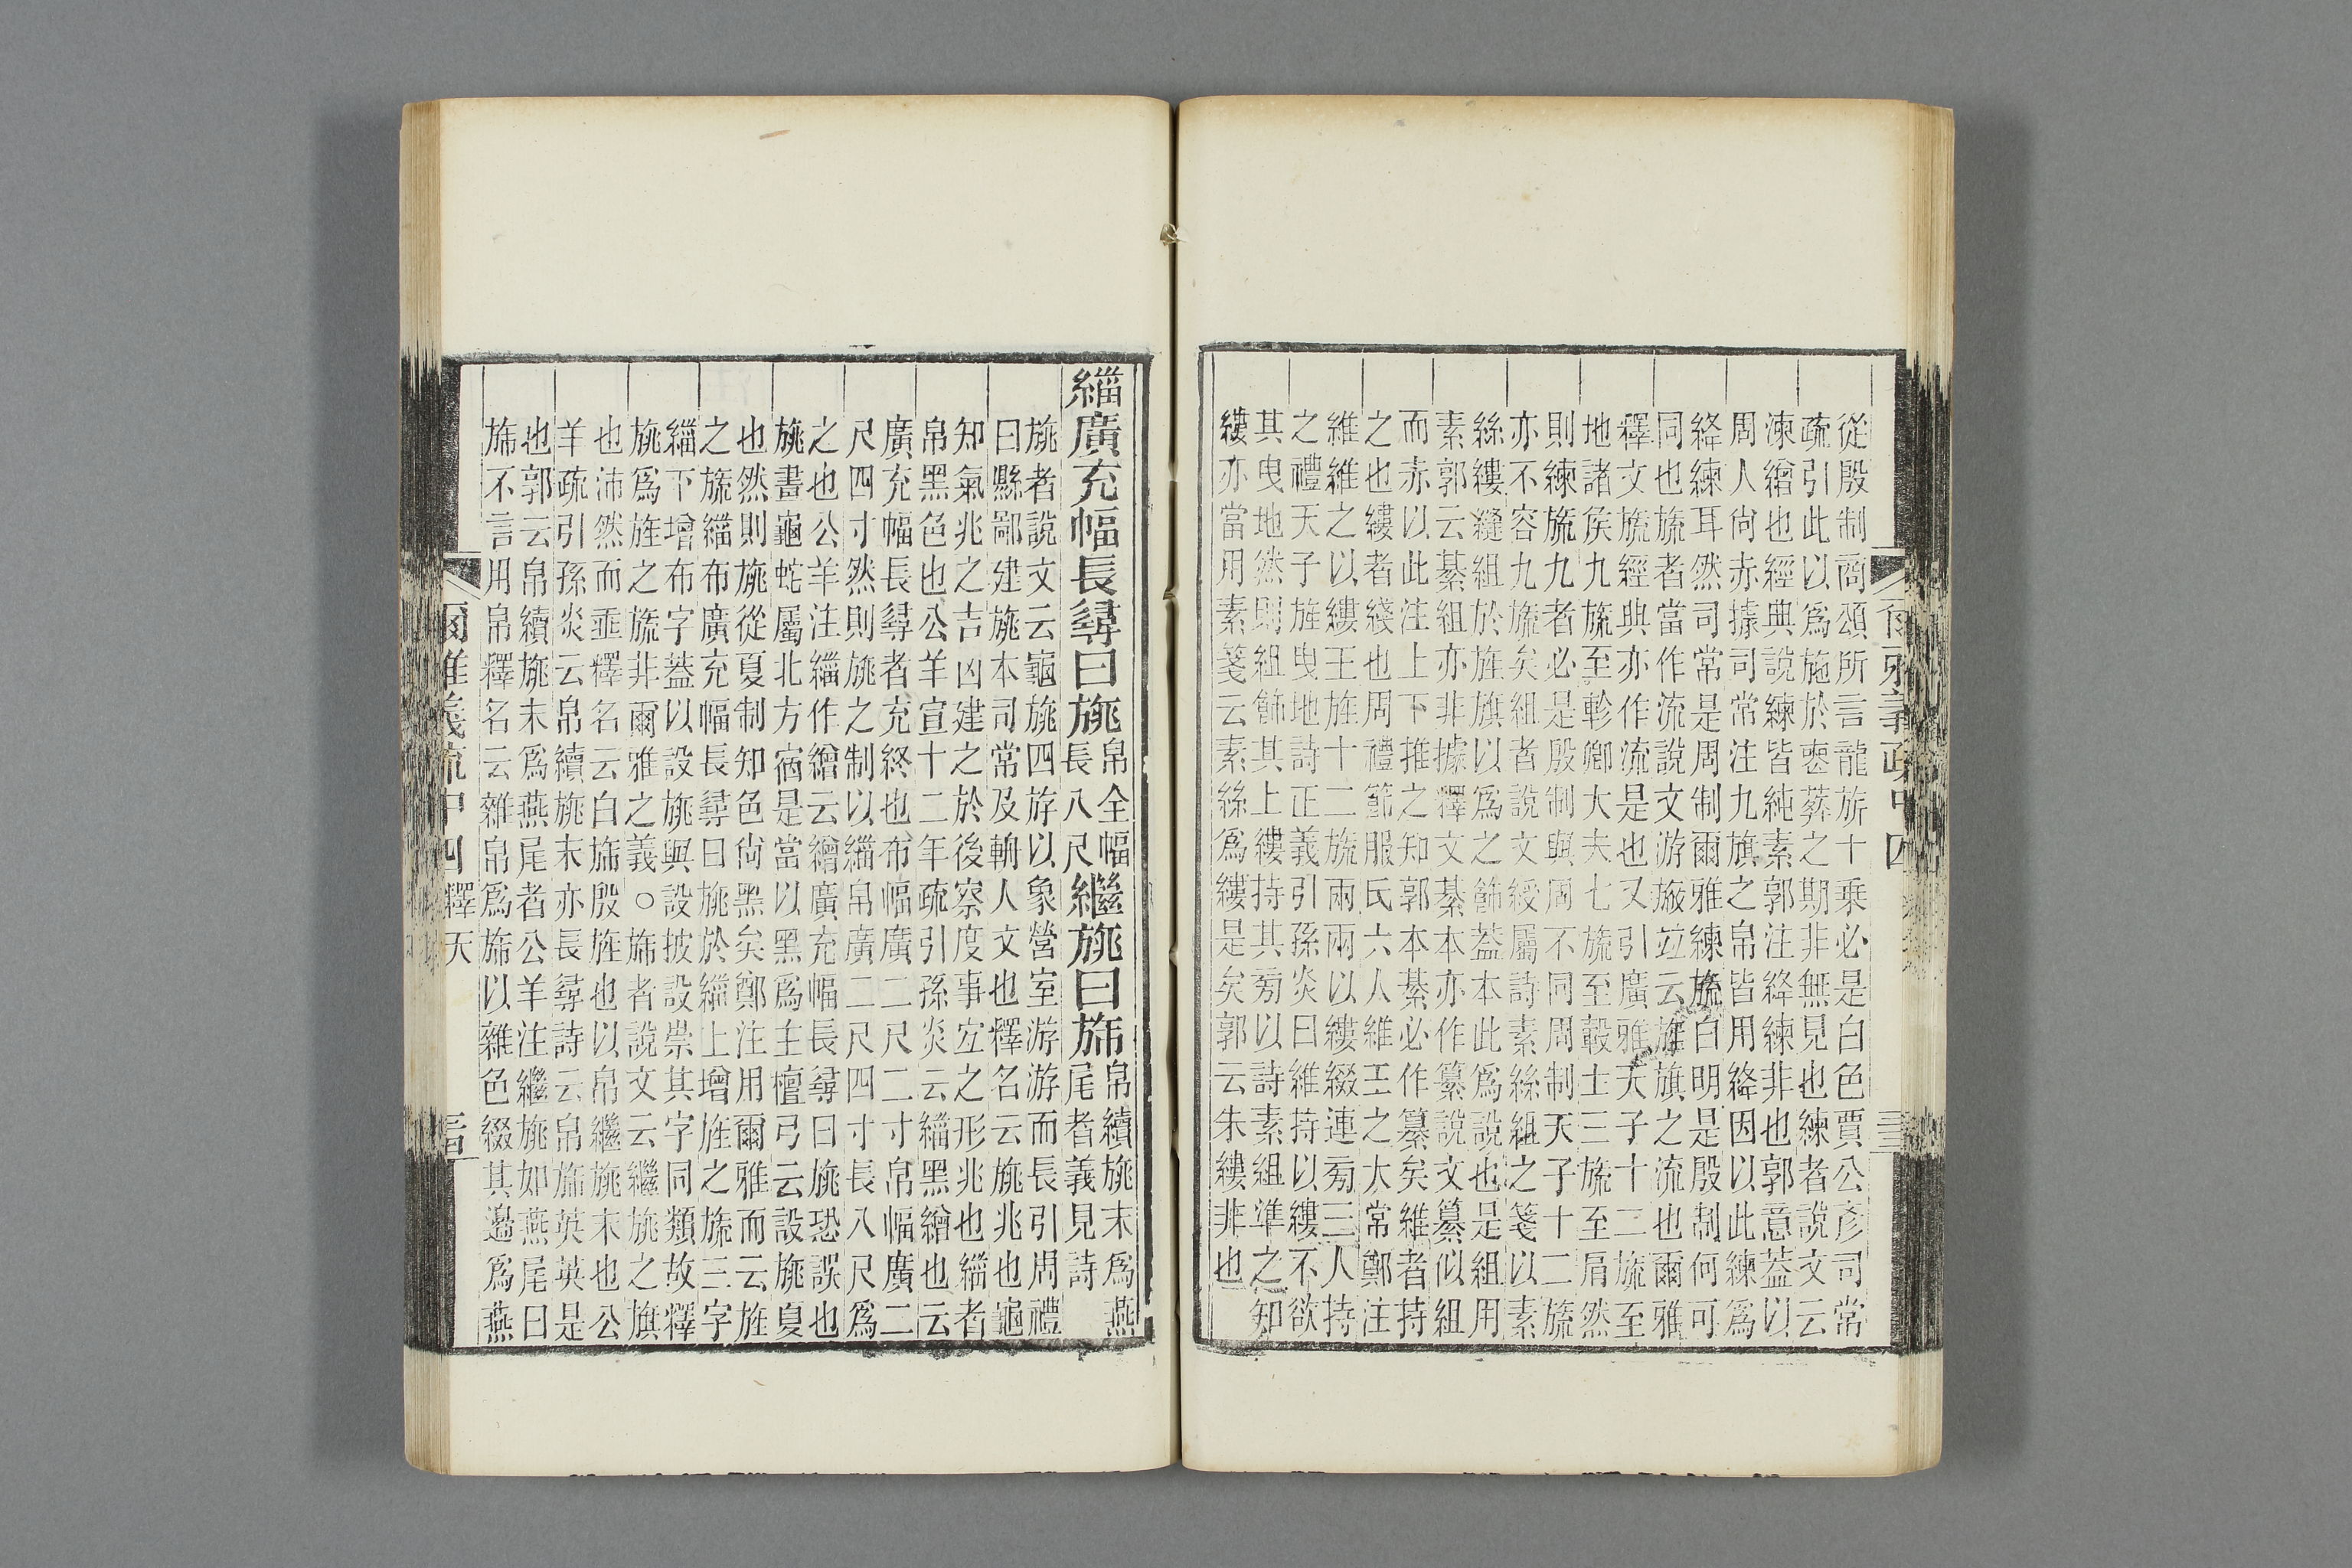 從殷制商頌所言龍旂十乘必是白色賈公彥司常
疏引此以爲施於喪葬之期非無見也練者說文云
湅繒也經典說練皆純素郭注絳練非也郭意蓋以
周人尙赤據司常注九旗之帛皆用絳因以此練爲
絳練耳然司常是周制爾雅練旒白明是殷制何可
同也旒者當作流說文游旌竝云旌旗之流也爾雅
釋文旒經典亦作流是也又引廣雅天子十二旒至
地諸侯九旒至軫卿大夫七旒至轂士三旒至肩然
則練旒九者必是殷制與周不同周制天子十二旒
亦不容九旒矣組者說文綬屬詩素絲組之箋以素
絲縷縫組於旌旗以爲之飾蓋本此爲說也是組用
素郭云綦組亦非據釋文綦本亦作纂說文纂似組
而赤以此注上下推之知郭本綦必作纂矣維者持
之也縷者綫也周禮節服氏六人維王之大常鄭注
維維之以縷王旌十二旒兩兩以縷綴連旁三人持
之禮天子旌曳地詩正義引孫炎曰維持以縷不欲
其曳地然則組飾其上縷持其旁以詩素組準之知
縷亦當用素箋云素絲爲縷是矣郭云朱縷非也
爾雅義疏中四
緇廣充幅長尋曰旐帛全幅長八尺繼旐曰旆帛續旐末爲燕尾者義見詩
旐者說文云龜旐四斿以象營室游游而長引周禮
曰縣鄙建旐本司常及輈人文也釋名云旐兆也龜
知氣兆之吉凶建之於後察度事宜之形兆也緇者
帛黑色也公羊宣十二年疏引孫炎云緇黑繒也云
廣充幅長尋者充終也布幅廣二尺二寸帛幅廣二
尺四寸然則旐之制以緇帛廣二尺四寸長八尺爲
之也公羊注緇作繒云繒廣充幅長尋曰旐恐誤也
旐畫龜蛇屬北方宿是當以黑爲主檀弓云設旐夏
也然則旐從夏制知色尙黑矣鄭注用爾雅而云旌
之旒緇布廣充幅長尋曰旐於緇上增旌之旒三字
緇下增布字蓋以設旐與設披設崇其字同類故釋
旐爲旌之旒非爾雅之義○旆者說文云繼旐之旗
也沛然而垂釋名云白旆殷旌也以帛繼旐末也公
羊疏引孫炎云帛續旐末亦長尋詩云帛旆英英是
也郭云帛續旐末爲燕尾者公羊注繼旐如燕尾曰
旆不言用帛釋名云雜帛爲旆以雜色綴其邊爲燕
爾雅義疏中四 釋天